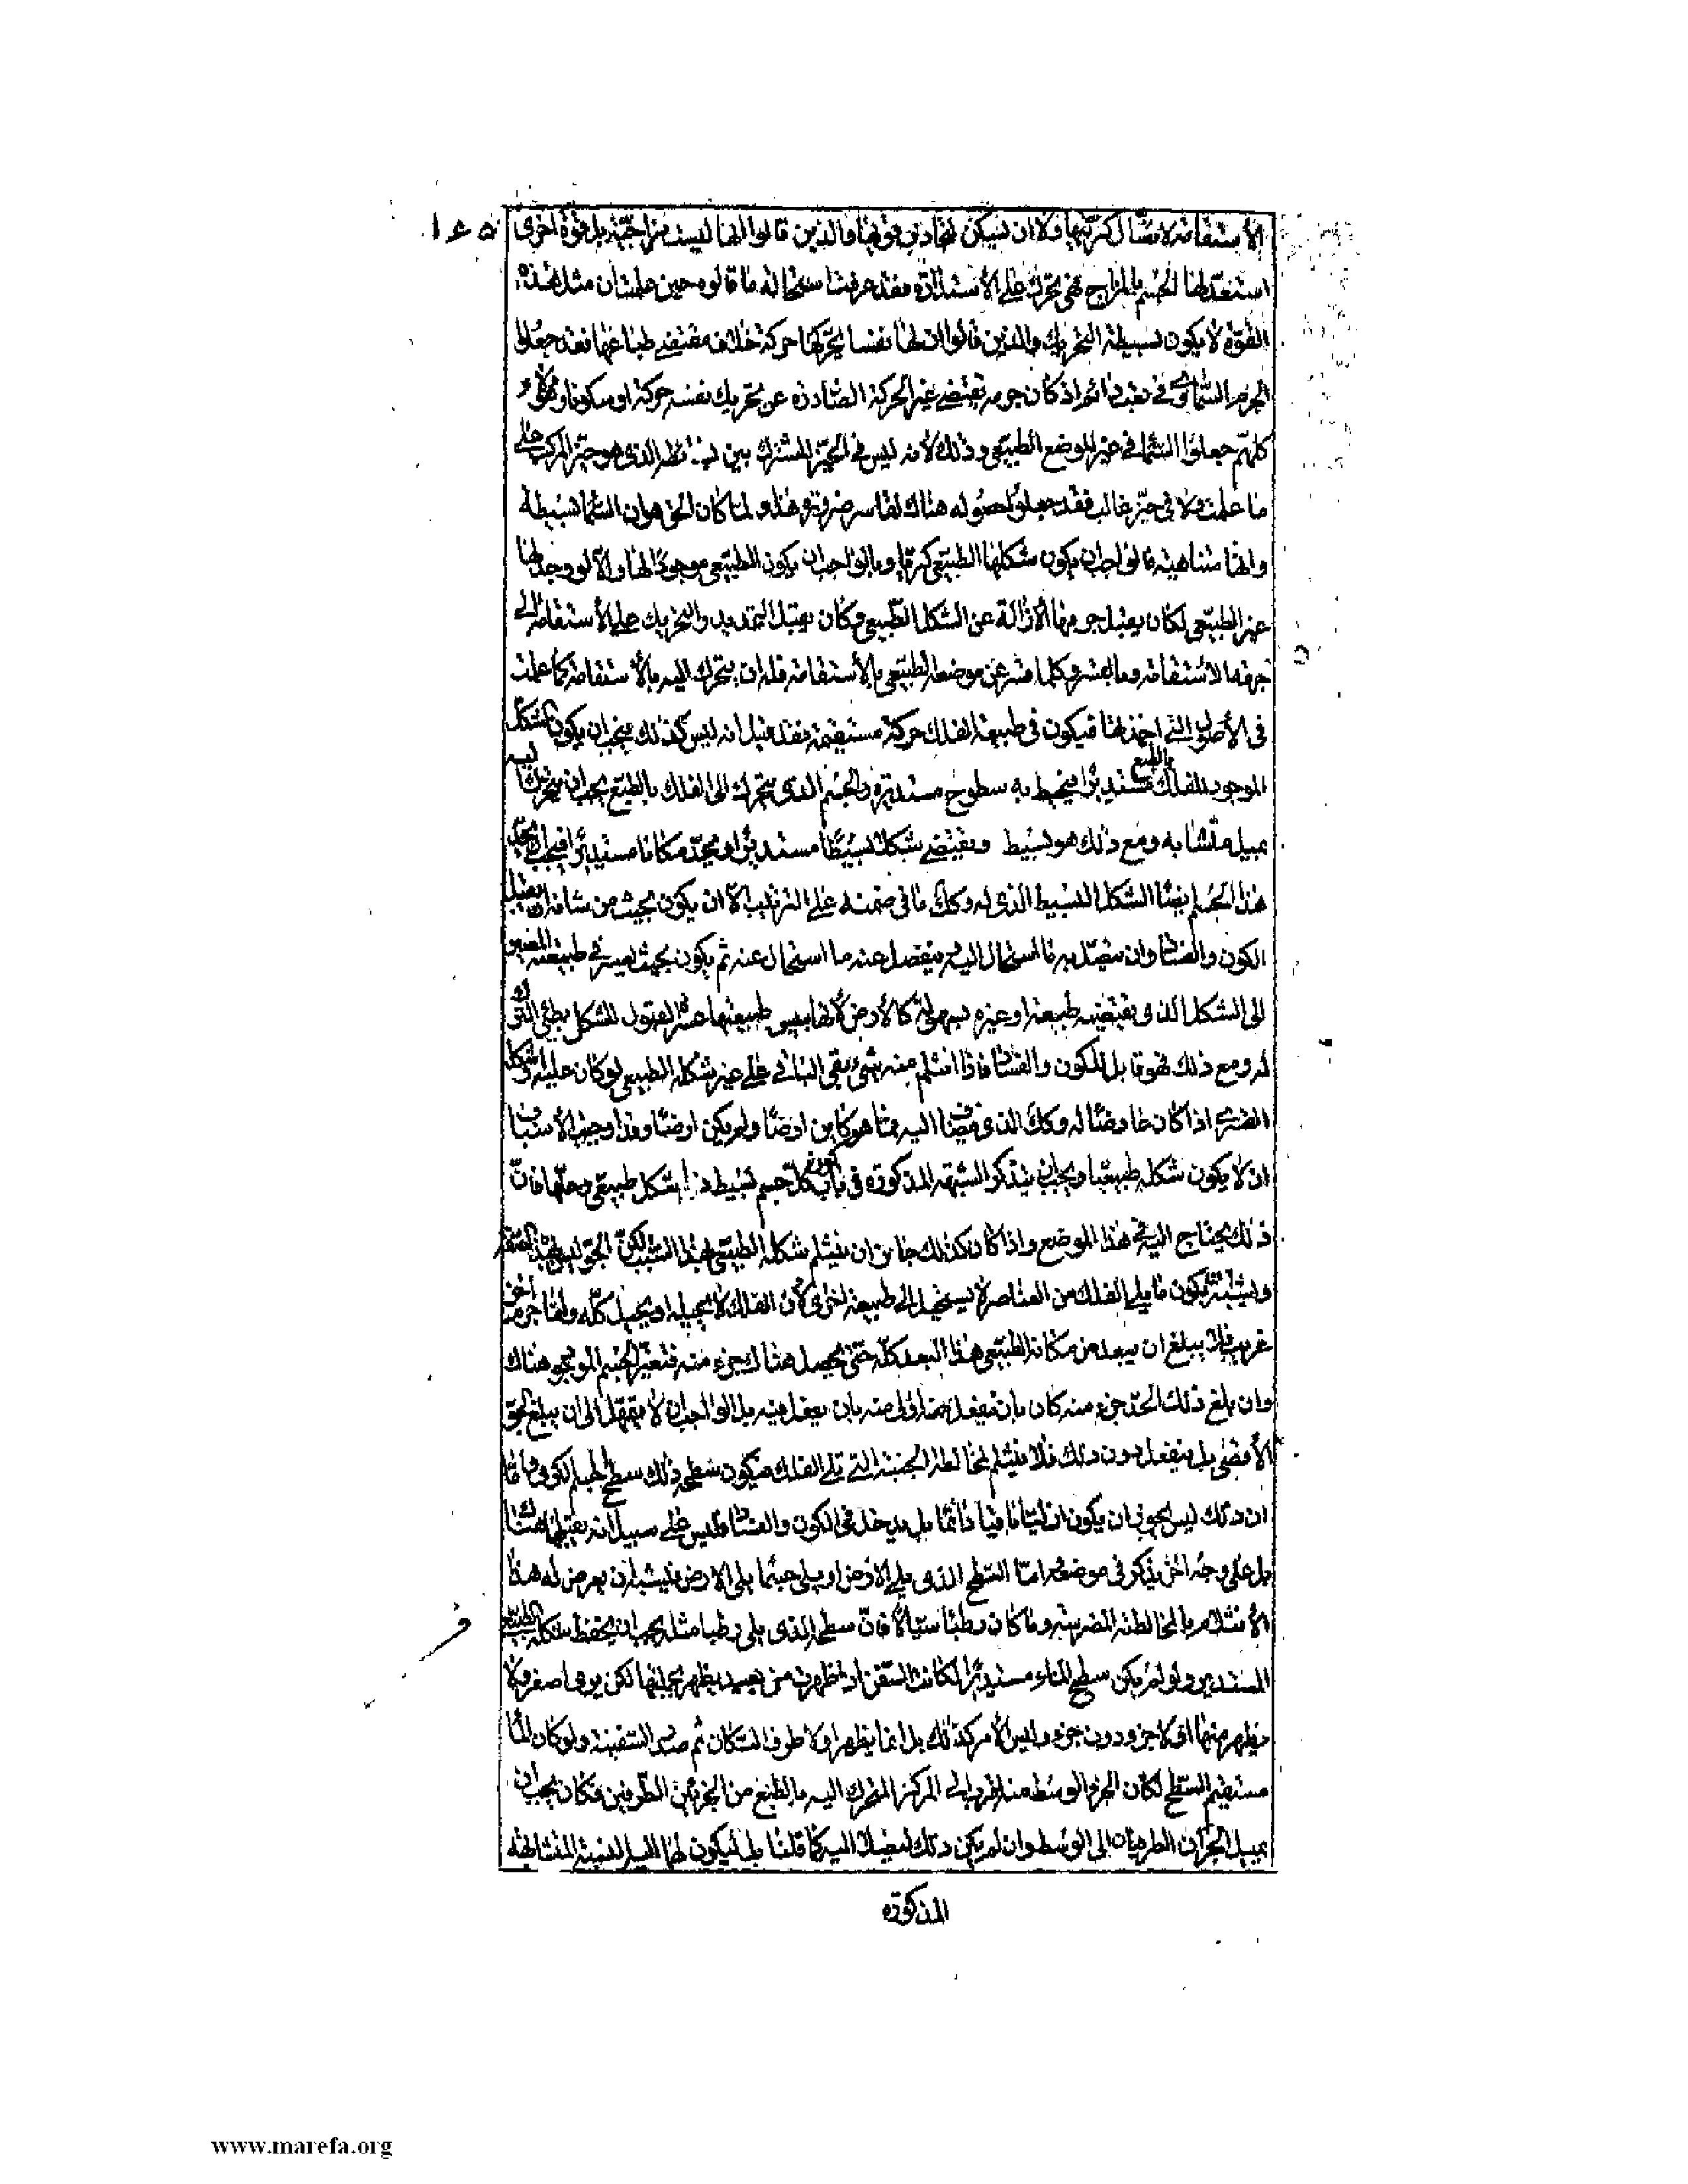 ١٤٥
استعد لها الجسم بالمزاج فهي تحرك على الاستدارة فقد عرفت استحالة ما قالوه حين علمت ان مثل هذه
القوة لا يكون بسيطة التحريك والذين قالوا ان لها نفسا تحركها حركة خلاف مقتضى طباعها فقد جعلوا
الجرم السماوى فى تعب دائم اذ كان جرمه يقتضى غير الحركة الصادرة عن تحريك نفسه حركة او سكونا وهؤلاء
كلهم جعلوا السماء فى غير الموضع الطبيعى وذلك لانه ليس فى الحيز المشترك بين بسائطه الذى هو حيز المركب على
ما علمت ولا فى حيز غالب فقد جعلوا حصوله هناك لقاسر ضرورة هذا ولما كان الحق هو ان السماء بسيطة
وانها متناهية فالواجب ان يكون شكلها الطبيعى كريا وبالواجب ان يكون الطبيعى موجودا لها والا لو وجد لها
غير الطبيعى لكان يقبل جرمها الازالة عن الشكل الطبيعى وكان يقبل التمديد والتحريك على الاستقامة الى
جهة الاستقامة وما بعسر وكلما قسر عن موضعه الطبيعى بالاستقامة فله ان يتحرك اليه بالاستقامة كما علمت
فى الاصول التى اخذتها فيكون فى طبيعة الفلك حركة مستقيمة فقد قيل انه ليس كذلك فيجب ان يكون الشكل
الموجود للفلك بالطبع مستديرا فيحيط به سطوح مستديرة والجسم الذى يتحرك الى الفلك بالطبع يجب ان يتحرك اليه
بميل متشابه ومع ذلك هو بسيط ويقتضى شكلا بسيطا مستديرا ويجد مكانا مستديرا فيجب ان يجد
هذا الجسم ايضا الشكل البسيط الذى له وكك ما فى ضمنه على الترتيب الا ان يكون بحيث من شانه ان يقبل
الكون والفساد وان يتصل به ما استحال اليه وينفصل عنه ما استحال عنه ثم يكون بحيث يعسر فى طبيعته المصير
الى الشكل الذى يقتضيه طبيعته او غيره بسهولة كالارض لانها بيبوس طبيعتها عسر القبول للشكل بطئ الترك
له ومع ذلك فهو قابل للكون والفساد فاذا انثلم منه شىء بقى الباقى على غير شكله الطبيعى لو كان عليه وشكله
القسرى اذا كان عارضا له وكك الذى اضيف اليه مما هو كاين ارضا ولم يكن ارضا وقد اوجب الاسباب
ان لا يكون شكله طبيعيا ويجب ان يتذكر الشبهة المذكورة فى باب كون كل جسم بسيط ذا شكل طبيعى وحلها فان
ذلك يحتاج اليه فى هذا الموضع واذا كان كذلك جاز ان ينثلم شكله الطبيعى بهذا السبب لكن
ويشبه ان يكون ما يلى الفلك من العناصر لا يستحيل الى طبيعة اخرى لان الفلك لا يحيله او يحيل كله واما جرم اخر
غريب فلا يبلغ ان يبعد من مكانه الطبيعى هذا البعد كله حتى يحصل هناك جزء منه فتغير الجسم الموجود هناك
وان بلغ ذلك الحد جزء منه كان بان ينفعل هذا اولى منه بان يفعل فيه بل الواجب ان لا يتمهل الى ان يبلغ الحد
الاقصى بل ينفعل دون ذلك فلا ينثلم لمخالطة الجنبة التى تلى الفلك فيكون سطحه ذلك سطح الجسم الكرى واما
ان ذلك ليس يجوز ان يكون ازليا باقيا دائما بل يدخل فى الكون والفساد وليس على سبيل انه يقبلهما هناك
بل على وجه اخر نذكر فى موضعه واما السطح الذى يلى الارض او يلى جسما يلى الارض فيشبه ان يعرض له هذا
الانثلام بالمخالطة المضرسة وما كان رطبا سيالا فان سطحه الذى يلى رطبا مثله يجب ان يحفظ شكله الطبيعى
المستدير ولو لم يكن سطح الماء مستديرا لكانت السفن اذا ظهرت من بعيد يظهر بجملتها لكن يرى اصغر ولا
يظهر منها اولا جزء دون جزء وليس الامر كذلك بل انما يظهر اولا طرف السكان ثم صدر السفينة ولو كان الماء
مستقيم السطح لكان الجزء الوسط منه اقرب الى المركز المتحرك اليه بالطبع من الجزئين الطرفين فكان يجب ان
يميل الجزءان الطرفيان الى الوسط وان لم يكن ذلك ليصلا اليه كما قلنا بل ليكون لهما اليه النسبة المتشابهة
المذكورة
www.marefa.org